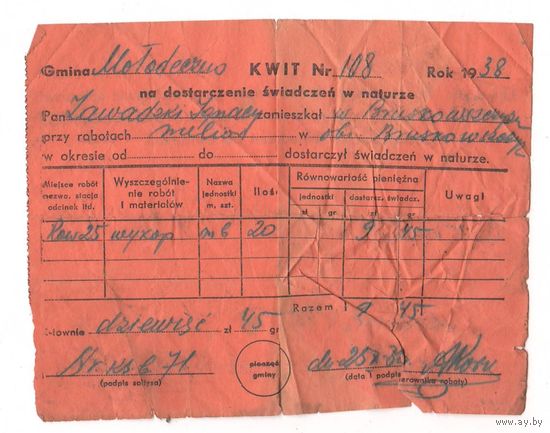 Gmina Mołodeczno KWIT Nr 108 Rok 1938
na dostarczenie świadczeń w naturze
Pan Zawadzki Ignacy zamieszkał w
przy robotach meliod w obr.
w okresie od do dostarczył świadczeń w naturze.
Miejsce robót nazwa, stacja odcinek itd. Wyszczególnienie robót i materiałów Nazwa jednostki m, szt. Ilość Równowartość pieniężna Uwagi
jednostki dostarcz. świadcz.
zł gr zł gr
25 wykop m b 20 9 45
Razem 9 45
Słownie dziewięć zł 45 gr
71 dn 25
(podpis sołtysa) pieczęć gminy (data i podpis kierownika roboty)
www.ay.by